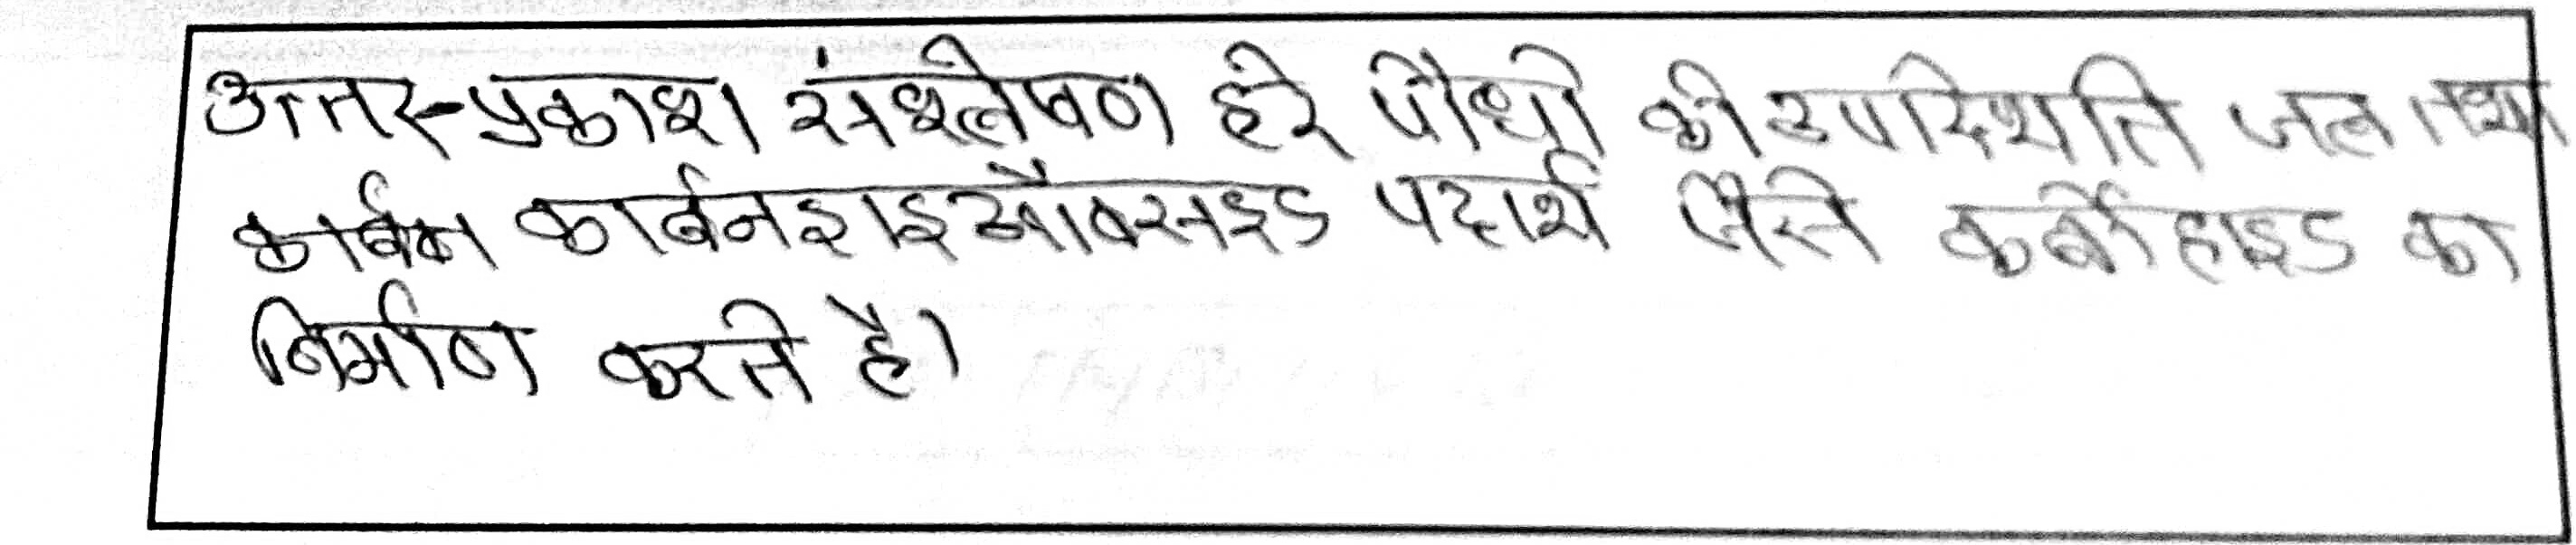 उत्तर-प्रकाश संश्लेषण हरे पौधो की उपस्थिति जल तथा
कार्बन कार्बनडाइऑक्सइड पदार्थ जैसे कर्बोहाइड का
निर्माण करते है।